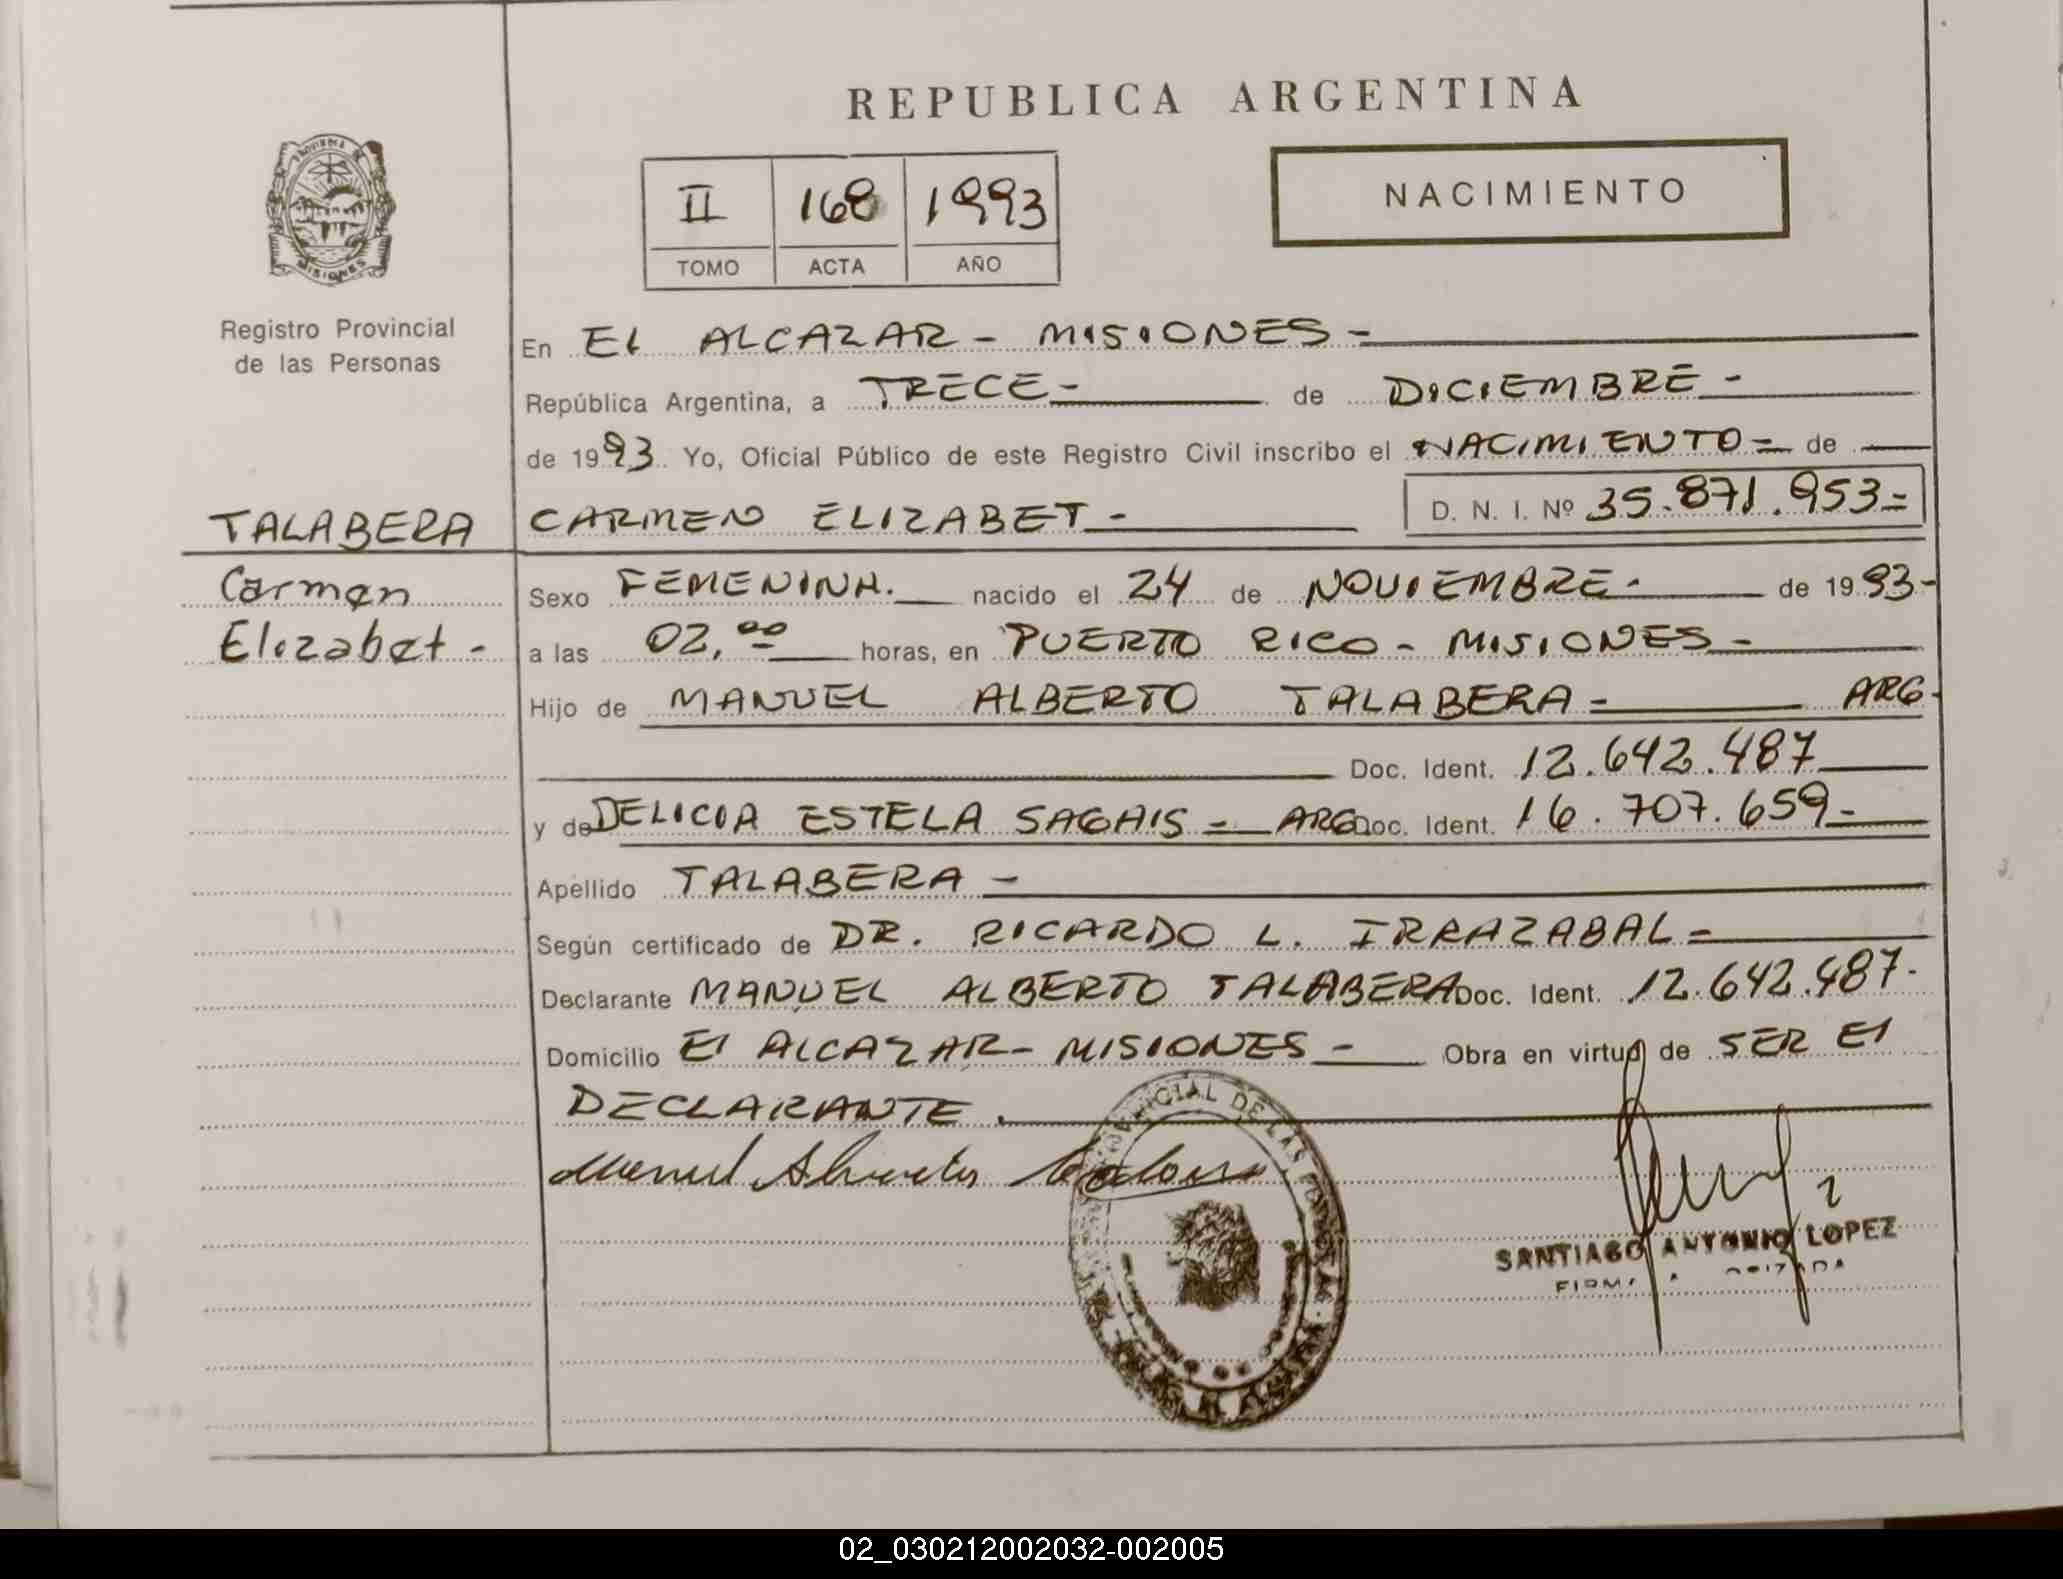 REPUBLICA ARGENTINA
PROVINCIA DE
MISIONES
II 168 1993
TOMO ACTA AÑO
NACIMIENTO
Registro Provincial
de las Personas
En EL ALCAZAR - MISIONES -
República Argentina, a TRECE - de DICIEMBRE -
de 1993. Yo, Oficial Público de este Registro Civil inscribo el NACIMIENTO = de
TALABERA CARMEN ELIZABET - D. N. I. Nº 35.871.953=
Carmen Sexo FEMENINA. nacido el 24 de NOVIEMBRE - de 1993-
Elizabet - a las 02,00 horas, en PUERTO RICO - MISIONES -
Hijo de MANUEL ALBERTO TALABERA = ARG.
Doc. Ident. 12.642.487
y de DELICIA ESTELA SAGAIS = ARG Doc. Ident. 16.707.659-
Apellido TALABERA -
Según certificado de DR. RICARDO L. IRRAZABAL =
Declarante MANUEL ALBERTO TALABERA Doc. Ident. 12.642.487.
Domicilio El ALCAZAR - MISIONES - Obra en virtud de SER El
DECLARANTE.
Manuel Alberto
SANTIAGO ANTONIO LOPEZ
02_030212002032-002005